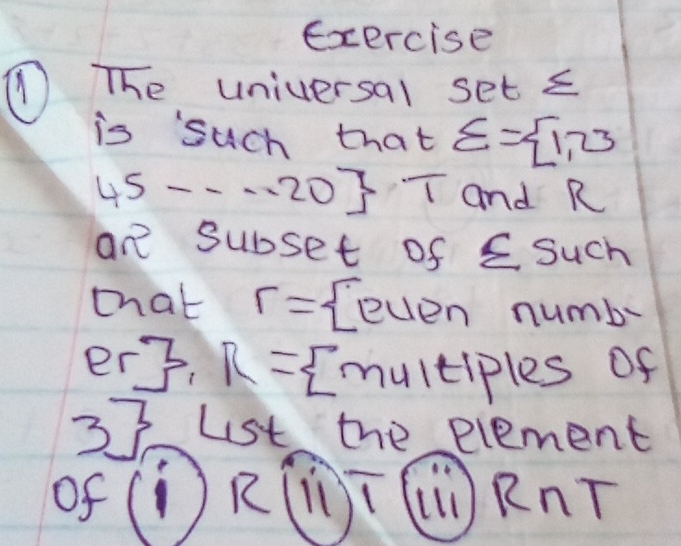 Exercise
① The universal set Ɛ
is such that Ɛ={1,23
45 - - - --20} T and R
are subset of Ɛ such
that T={even numb-
er}, R={multiples of
3} List the element
of (i) R (ii) T (iii) R∩T